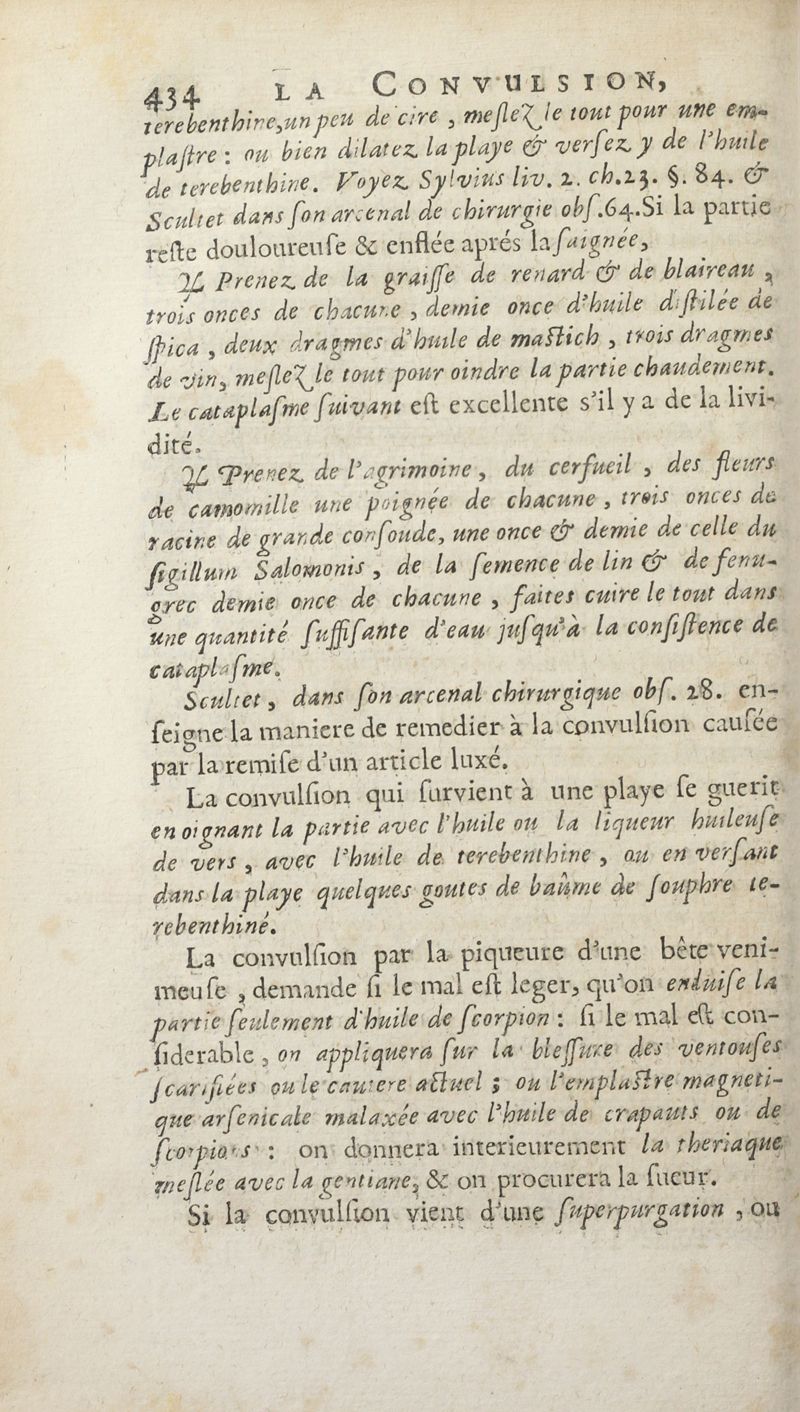 434 LA CONVULSION,
terebenthine, un peu de cire , meſleZ le tout pour une em-
plaſtre : ou bien dilatez la playe & verſez y de l'huile
de terebenthine. Voyez Sylvius liv. 2. ch. 23. §. 84. &
Scultet dans ſon arcenal de chirurgie obſ. 64. Si la partie
reſte douloureuſe & enflée aprés la ſaignée,
♃ Prenez de la graiſſe de renard & de blaireau ,
trois onces de chacune , demie once d'huile diſtilée de
ſpica , deux dragmes d'huile de maſtich , trois dragmes
de vin, meſleZ le tout pour oindre la partie chaudement.
Le cataplaſme ſuivant eſt excellente s'il y a de la livi-
dité.
♃ Prenez de l'agrimoine , du cerfueil , des fleurs
de camomille une poignée de chacune , trois onces de
racine de grande conſoude, une once & demie de celle du
ſigillum Salomonis , de la ſemence de lin & de fenu-
grec demie once de chacune , faites cuire le tout dans
une quantité ſuffiſante d'eau juſqu'à la conſiſtence de
cataplaſme.
Scultet , dans ſon arcenal chirurgique obſ. 28. en-
ſeigne la maniere de remedier à la convulſion cauſée
par la remiſe d'un article luxé.
La convulſion qui ſurvient à une playe ſe guerit
en oignant la partie avec l'huile ou la liqueur huileuſe
de vers , avec l'huile de terebenthine , ou en verſant
dans la playe quelques goutes de baûme de ſouphre te-
rebenthiné.
La convulſion par la piqueure d'une bête veni-
meuſe , demande ſi le mal eſt leger, qu'on enduiſe la
partie ſeulement d'huile de ſcorpion : ſi le mal eſt con-
ſiderable , on appliquera ſur la bleſſure des ventouſes
ſcarifiées ou le cautere actuel ; ou l'emplaſtre magneti-
que arſenicale malaxée avec l'huile de crapauts ou de
ſcorpions : on donnera interieurement la theriaque
meſlée avec la gentiane, & on procurera la ſueur.
Si la convulſion vient d'une ſuperpurgation , ou